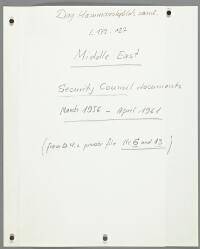 Dag Hammarskjölds saml.
L 179:127
Middle East
Security Council documents
March 1956 – April 1961
(from D.H.:s private file Nr 6 and 13)